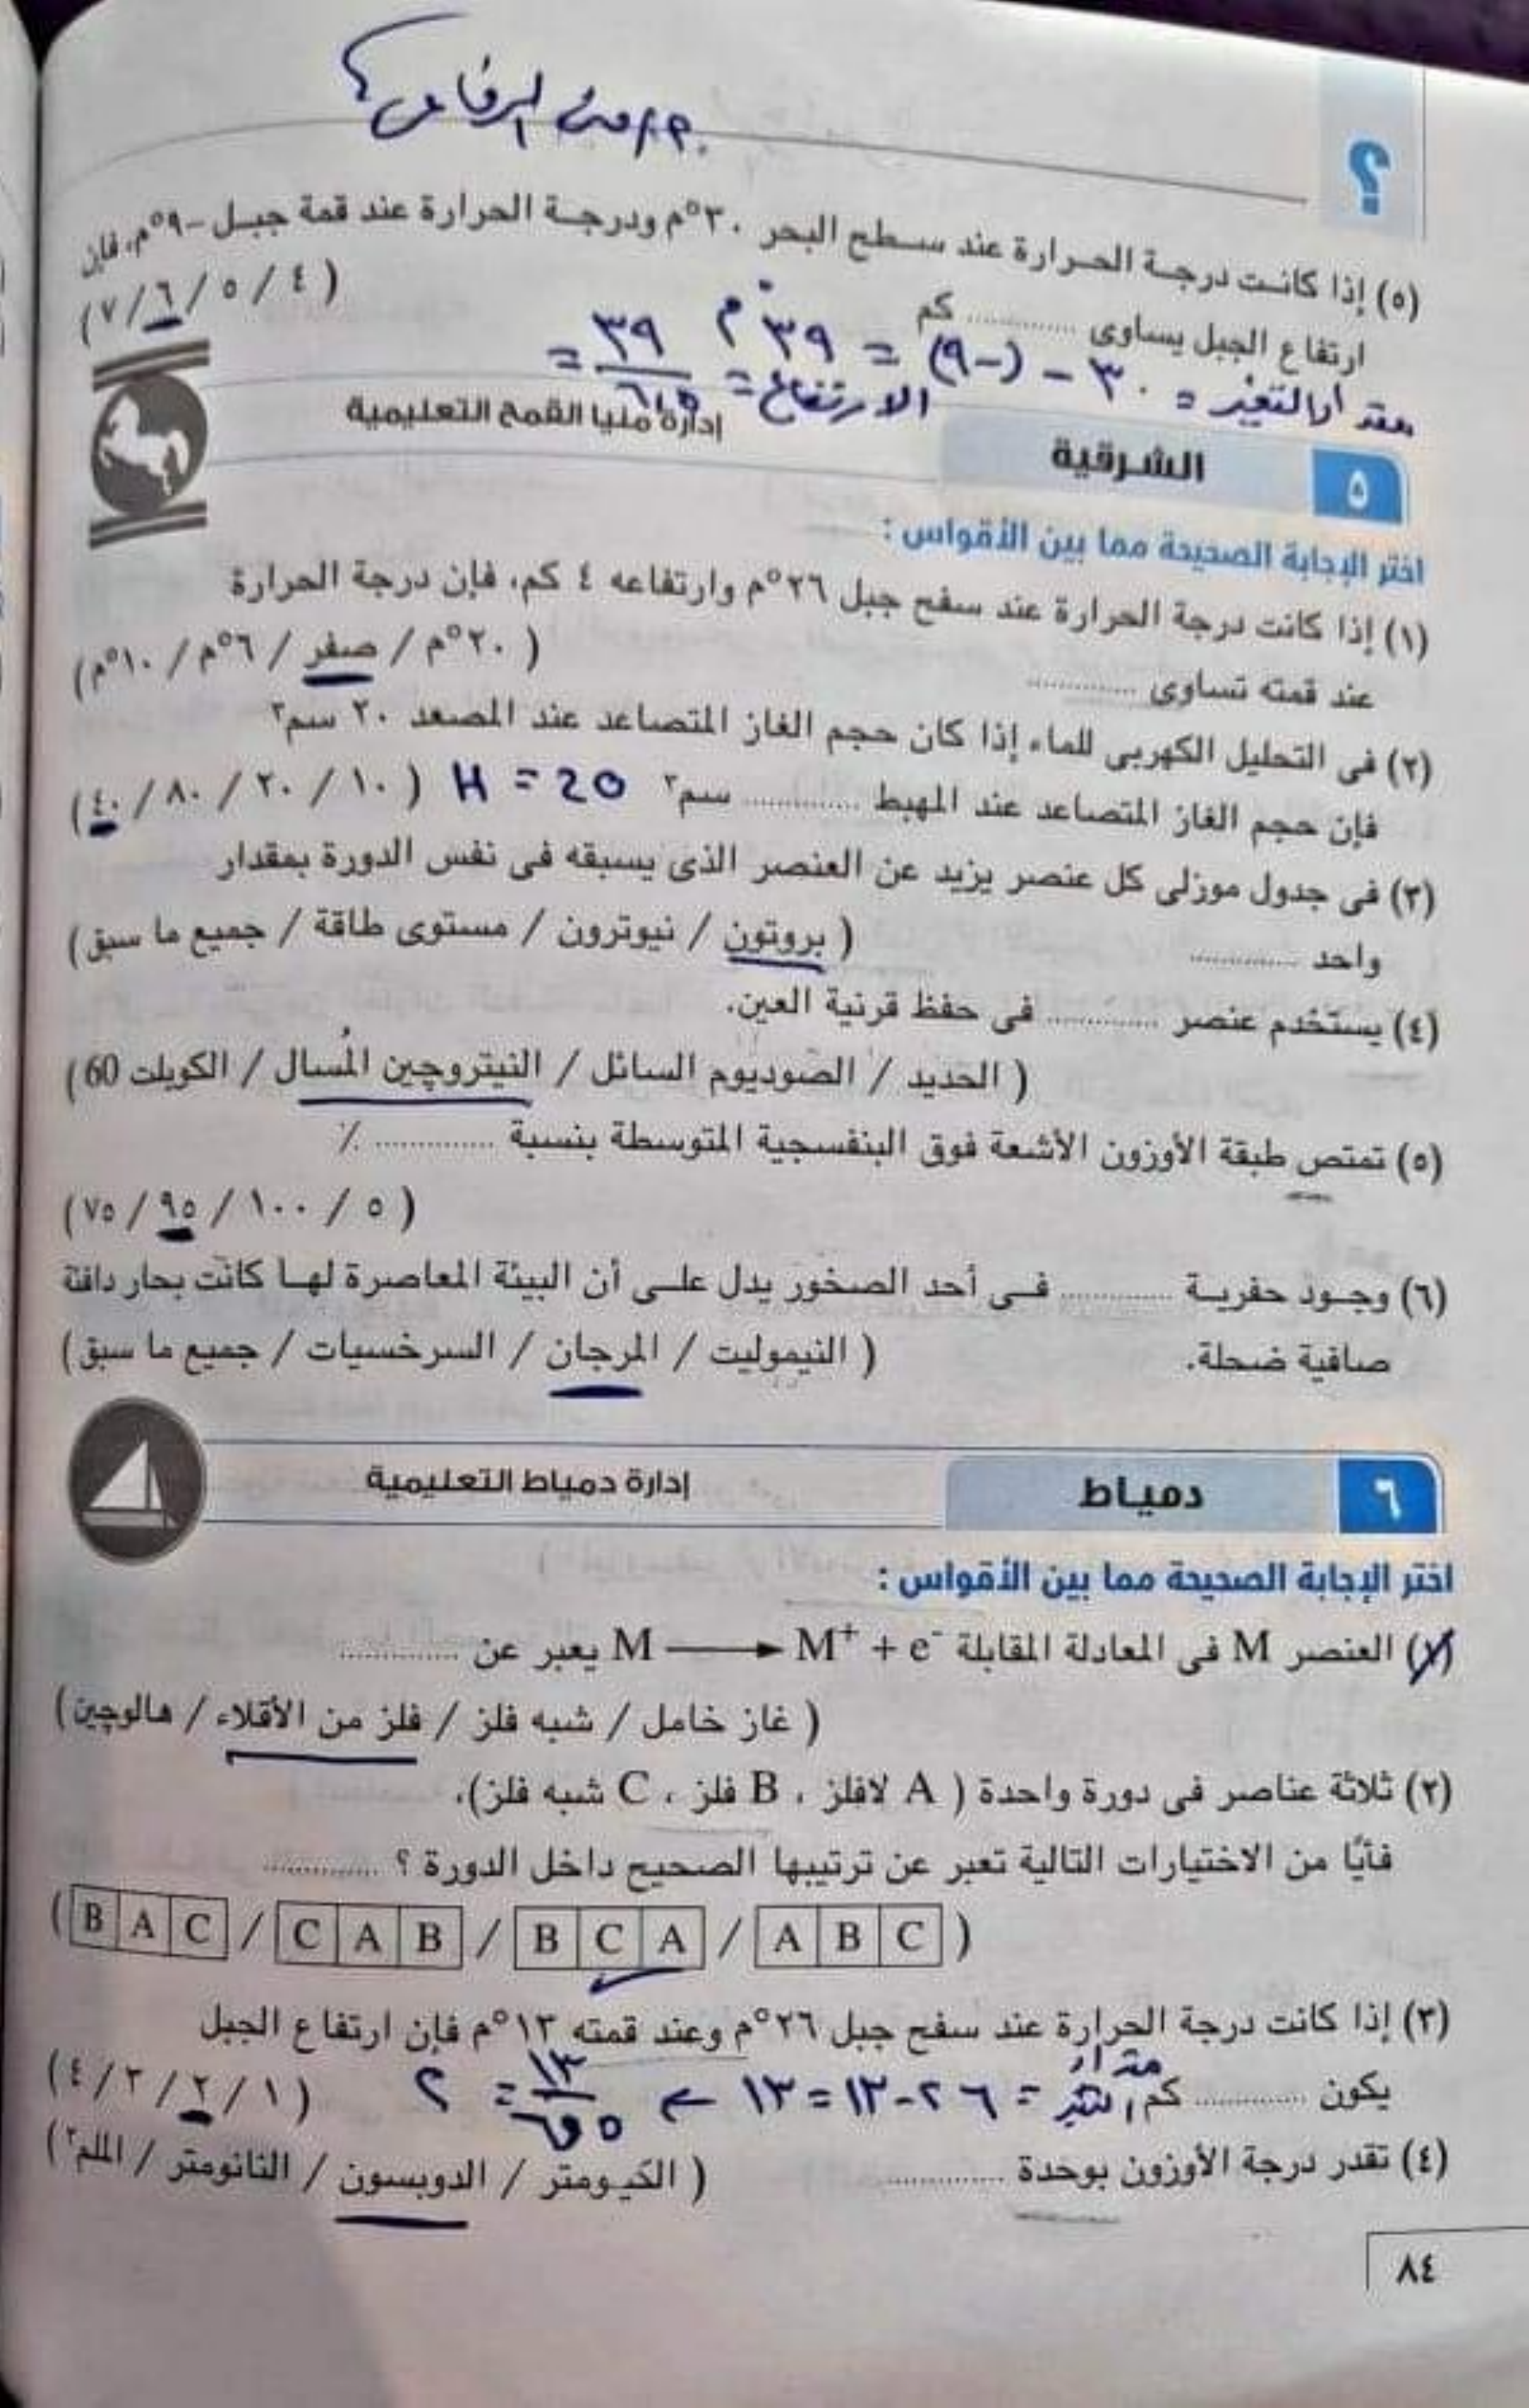 ؟
(٥) إذا كانت درجة الحرارة عند سطح البحر ٣٠°م ودرجة الحرارة عند قمة جبل -٩°م، فإن
ارتفاع الجبل يساوى ............ كم ( ٤ / ٥ / ٦ / ٧ )
مقدار التغير = ٣٠ - (-٩) = ٣٩ °م الارتفاع = ٣٩ / ٦,٥ =
٥ الشرقية إدارة منيا القمح التعليمية
اختر الإجابة الصحيحة مما بين الأقواس :
(١) إذا كانت درجة الحرارة عند سفح جبل ٢٦°م وارتفاعه ٤ كم، فإن درجة الحرارة
عند قمته تساوى ............ ( ٢٠°م / صفر / ٦°م / ١٠°م )
(٢) فى التحليل الكهربى للماء إذا كان حجم الغاز المتصاعد عند المصعد ٢٠ سم٣
فإن حجم الغاز المتصاعد عند المهبط ............ سم٣ H = 20 ( ١٠ / ٢٠ / ٨٠ / ٤٠ )
(٣) فى جدول موزلى كل عنصر يزيد عن العنصر الذى يسبقه فى نفس الدورة بمقدار
واحد ............ ( بروتون / نيوترون / مستوى طاقة / جميع ما سبق )
(٤) يستخدم عنصر ............ فى حفظ قرنية العين.
( الحديد / الصوديوم السائل / النيتروچين المُسال / الكوبلت 60 )
(٥) تمتص طبقة الأوزون الأشعة فوق البنفسجية المتوسطة بنسبة ............ ٪
( ٥ / ١٠٠ / ٩٥ / ٧٥ )
(٦) وجود حفرية ............ فى أحد الصخور يدل على أن البيئة المعاصرة لها كانت بحار دافئة
صافية ضحلة. ( النيموليت / المرجان / السرخسيات / جميع ما سبق )
٦ دمياط إدارة دمياط التعليمية
اختر الإجابة الصحيحة مما بين الأقواس :
(١) العنصر M فى المعادلة المقابلة M ⟶ M⁺ + e⁻ يعبر عن ............
( غاز خامل / شبه فلز / فلز من الأقلاء / هالوچين )
(٢) ثلاثة عناصر فى دورة واحدة ( A لافلز ، B فلز ، C شبه فلز)،
فأيًا من الاختيارات التالية تعبر عن ترتيبها الصحيح داخل الدورة ؟ ............
( B A C / C A B / B C A / A B C )
(٣) إذا كانت درجة الحرارة عند سفح جبل ٢٦°م وعند قمته ١٣°م فإن ارتفاع الجبل
يكون ............ كم مقدار التغير = ٢٦-١٣ = ١٣ ← ١٣ / ٦,٥ = ٢ ( ١ / ٢ / ٣ / ٤ )
(٤) تقدر درجة الأوزون بوحدة ............ ( الكيومتر / الدوبسون / النانومتر / الملم٢ )
٨٤